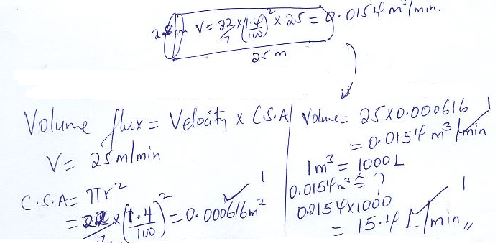 V = 22/7 × (1.4/100)² × 25 = 0.0154 m³/min.
25 m
Volume flux = Velocity × C.S.A
V = 25m/min
C.S.A = πr²
= 22/7 × (1.4/100)² = 0.000616m²
1
Volume = 25 × 0.000616
= 0.0154 m³/min
1
1m³ = 1000L
0.0154m³ = ?
0.0154 × 1000
= 15.4 L/min,,
1